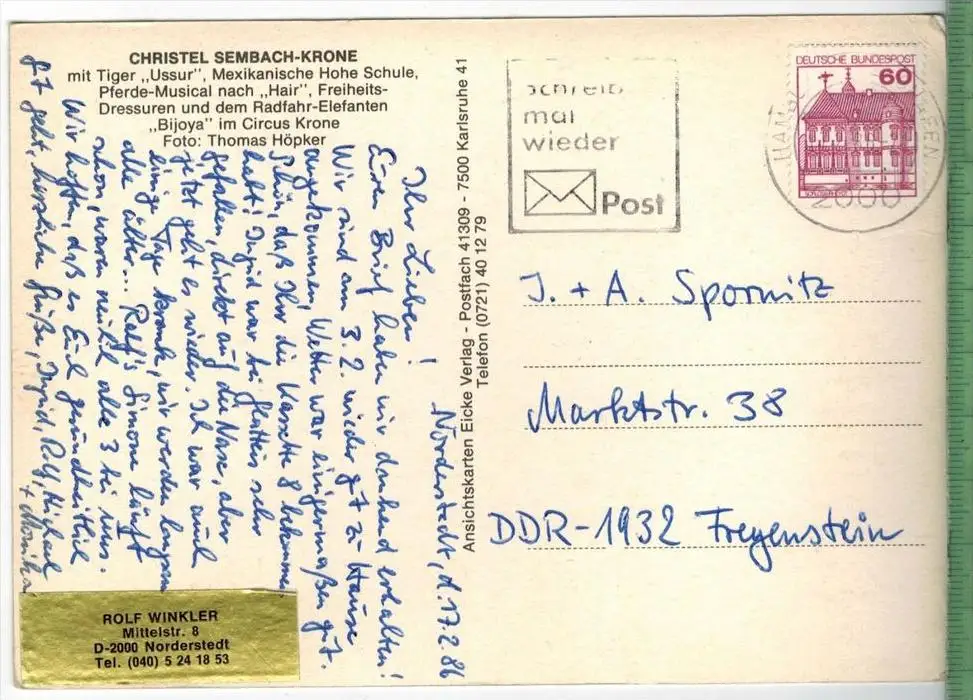 CHRISTEL SEMBACH-KRONE
mit Tiger „Ussur", Mexikanische Hohe Schule,
Pferde-Musical nach „Hair", Freiheits-
Dressuren und dem Radfahr-Elefanten
„Bijoya" im Circus Krone
Foto: Thomas Höpker
Norderstedt, d. 17.2.86
Ihr Lieben!
Euren Brief haben wir dankend erhalten!
Wir sind am 3.2. wieder gut zu Hause
angekommen, Wetter war einigermaßen gut.
Schön, daß Ihr die Kassette 8 bekommen
habt! Ingrid war bei Glatteis sehr
gefallen, direkt auf die Nase, aber
jetzt geht es wieder. Ich war auch
einige Tage krank, wir werden langsam
alle älter... Ralf's Simone läuft
schon, waren neulich alle 3 bei uns.
Wir hoffen, daß es Euch gesundheitlich
gut geht, herzliche Grüße, Ingrid, Rolf, Michael
+ Monika
ROLF WINKLER
Mittelstr. 8
D-2000 Norderstedt
Tel. (040) 5 24 18 53
Ansichtskarten Eicke Verlag - Postfach 41309 - 7500 Karlsruhe 41
Telefon (0721) 40 12 79
schreib
mal
wieder
Post
DEUTSCHE BUNDESPOST
60
2000
J. + A. Spornitz
Marktstr. 38
DDR-1932 Freyenstein